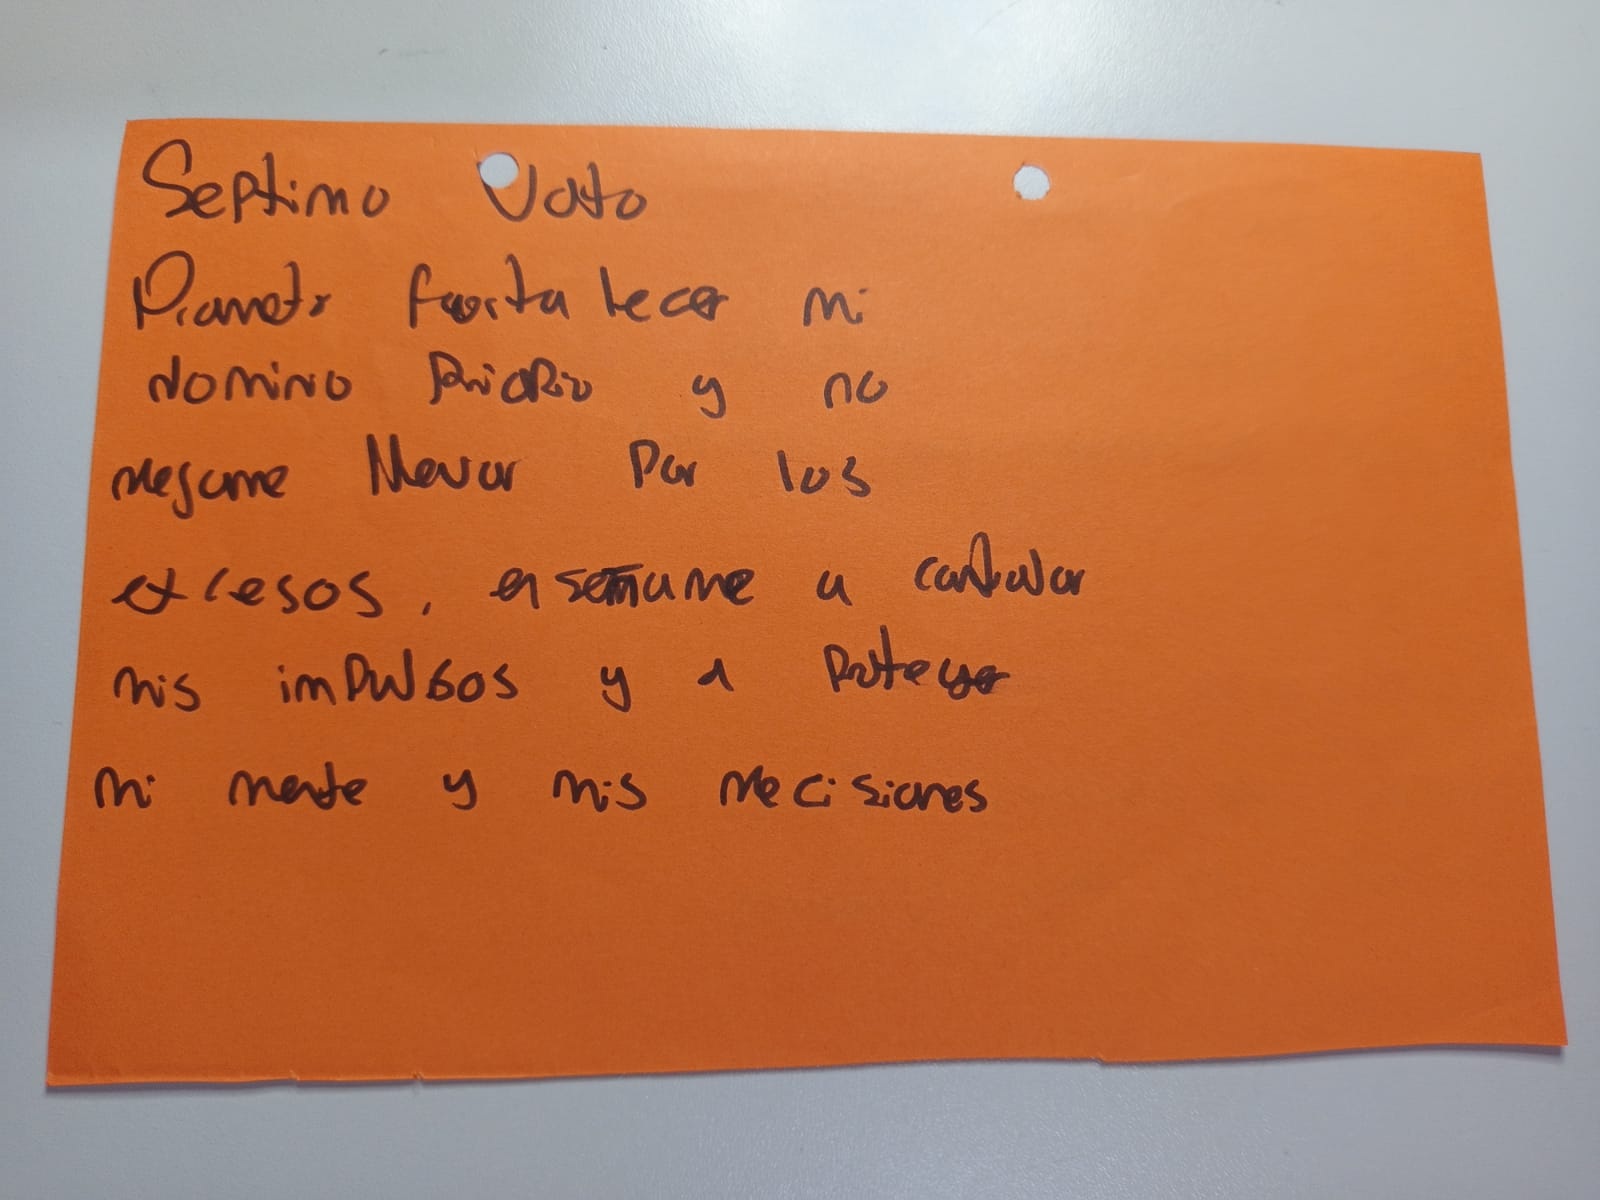 Septimo Voto
Prometo fortalecer mi
domino propio y no
dejarme llevar por los
excesos, enseñame a controlar
mis impulsos y a proteger
mi mente y mis decisiones